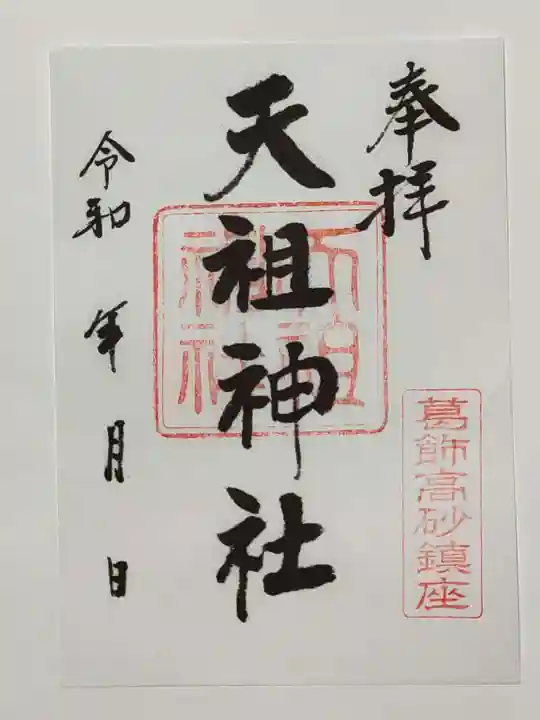 奉拝
葛飾高砂鎮座
天祖神社
天祖神社
令和 年 月 日